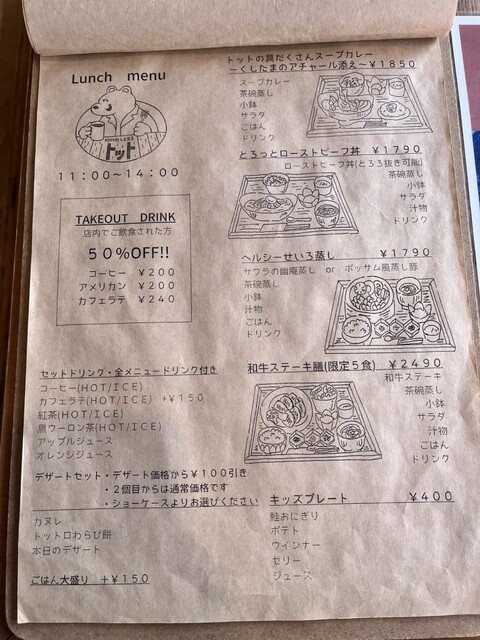 Lunch menu
トット
11:00～14:00
TAKEOUT DRINK
店内でご飲食された方
50%OFF!!
コーヒー ¥200
アメリカン ¥200
カフェラテ ¥240
セットドリンク・全メニュードリンク付き
コーヒー(HOT/ICE)
カフェラテ(HOT/ICE) +¥150
紅茶(HOT/ICE)
黒ウーロン茶(HOT/ICE)
アップルジュース
オレンジジュース
デザートセット・デザート価格から¥100引き
・2個目からは通常価格です
・ショーケースよりお選びください
カヌレ
トットロわらび餅
本日のデザート
ごはん大盛り +¥150
トットの具だくさんスープカレー
～くしたまのアチャール添え～¥1850
スープカレー
茶碗蒸し
小鉢
サラダ
ごはん
ドリンク
とろっとローストビーフ丼 ¥1790
ローストビーフ丼(とろろ抜き可能)
茶碗蒸し
小鉢
サラダ
汁物
ドリンク
ヘルシーせいろ蒸し ¥1790
サワラの幽庵蒸し or ポッサム風蒸し豚
茶碗蒸し
小鉢
汁物
ごはん
ドリンク
和牛ステーキ膳(限定5食) ¥2490
和牛ステーキ
茶碗蒸し
小鉢
サラダ
汁物
ごはん
ドリンク
キッズプレート ¥400
鮭おにぎり
ポテト
ウインナー
ゼリー
ジュース